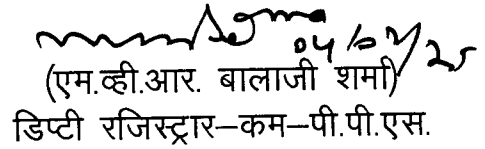 04/07/25
(एम.व्ही.आर. बालाजी शर्मा)
डिप्टी रजिस्ट्रार–कम–पी.पी.एस.